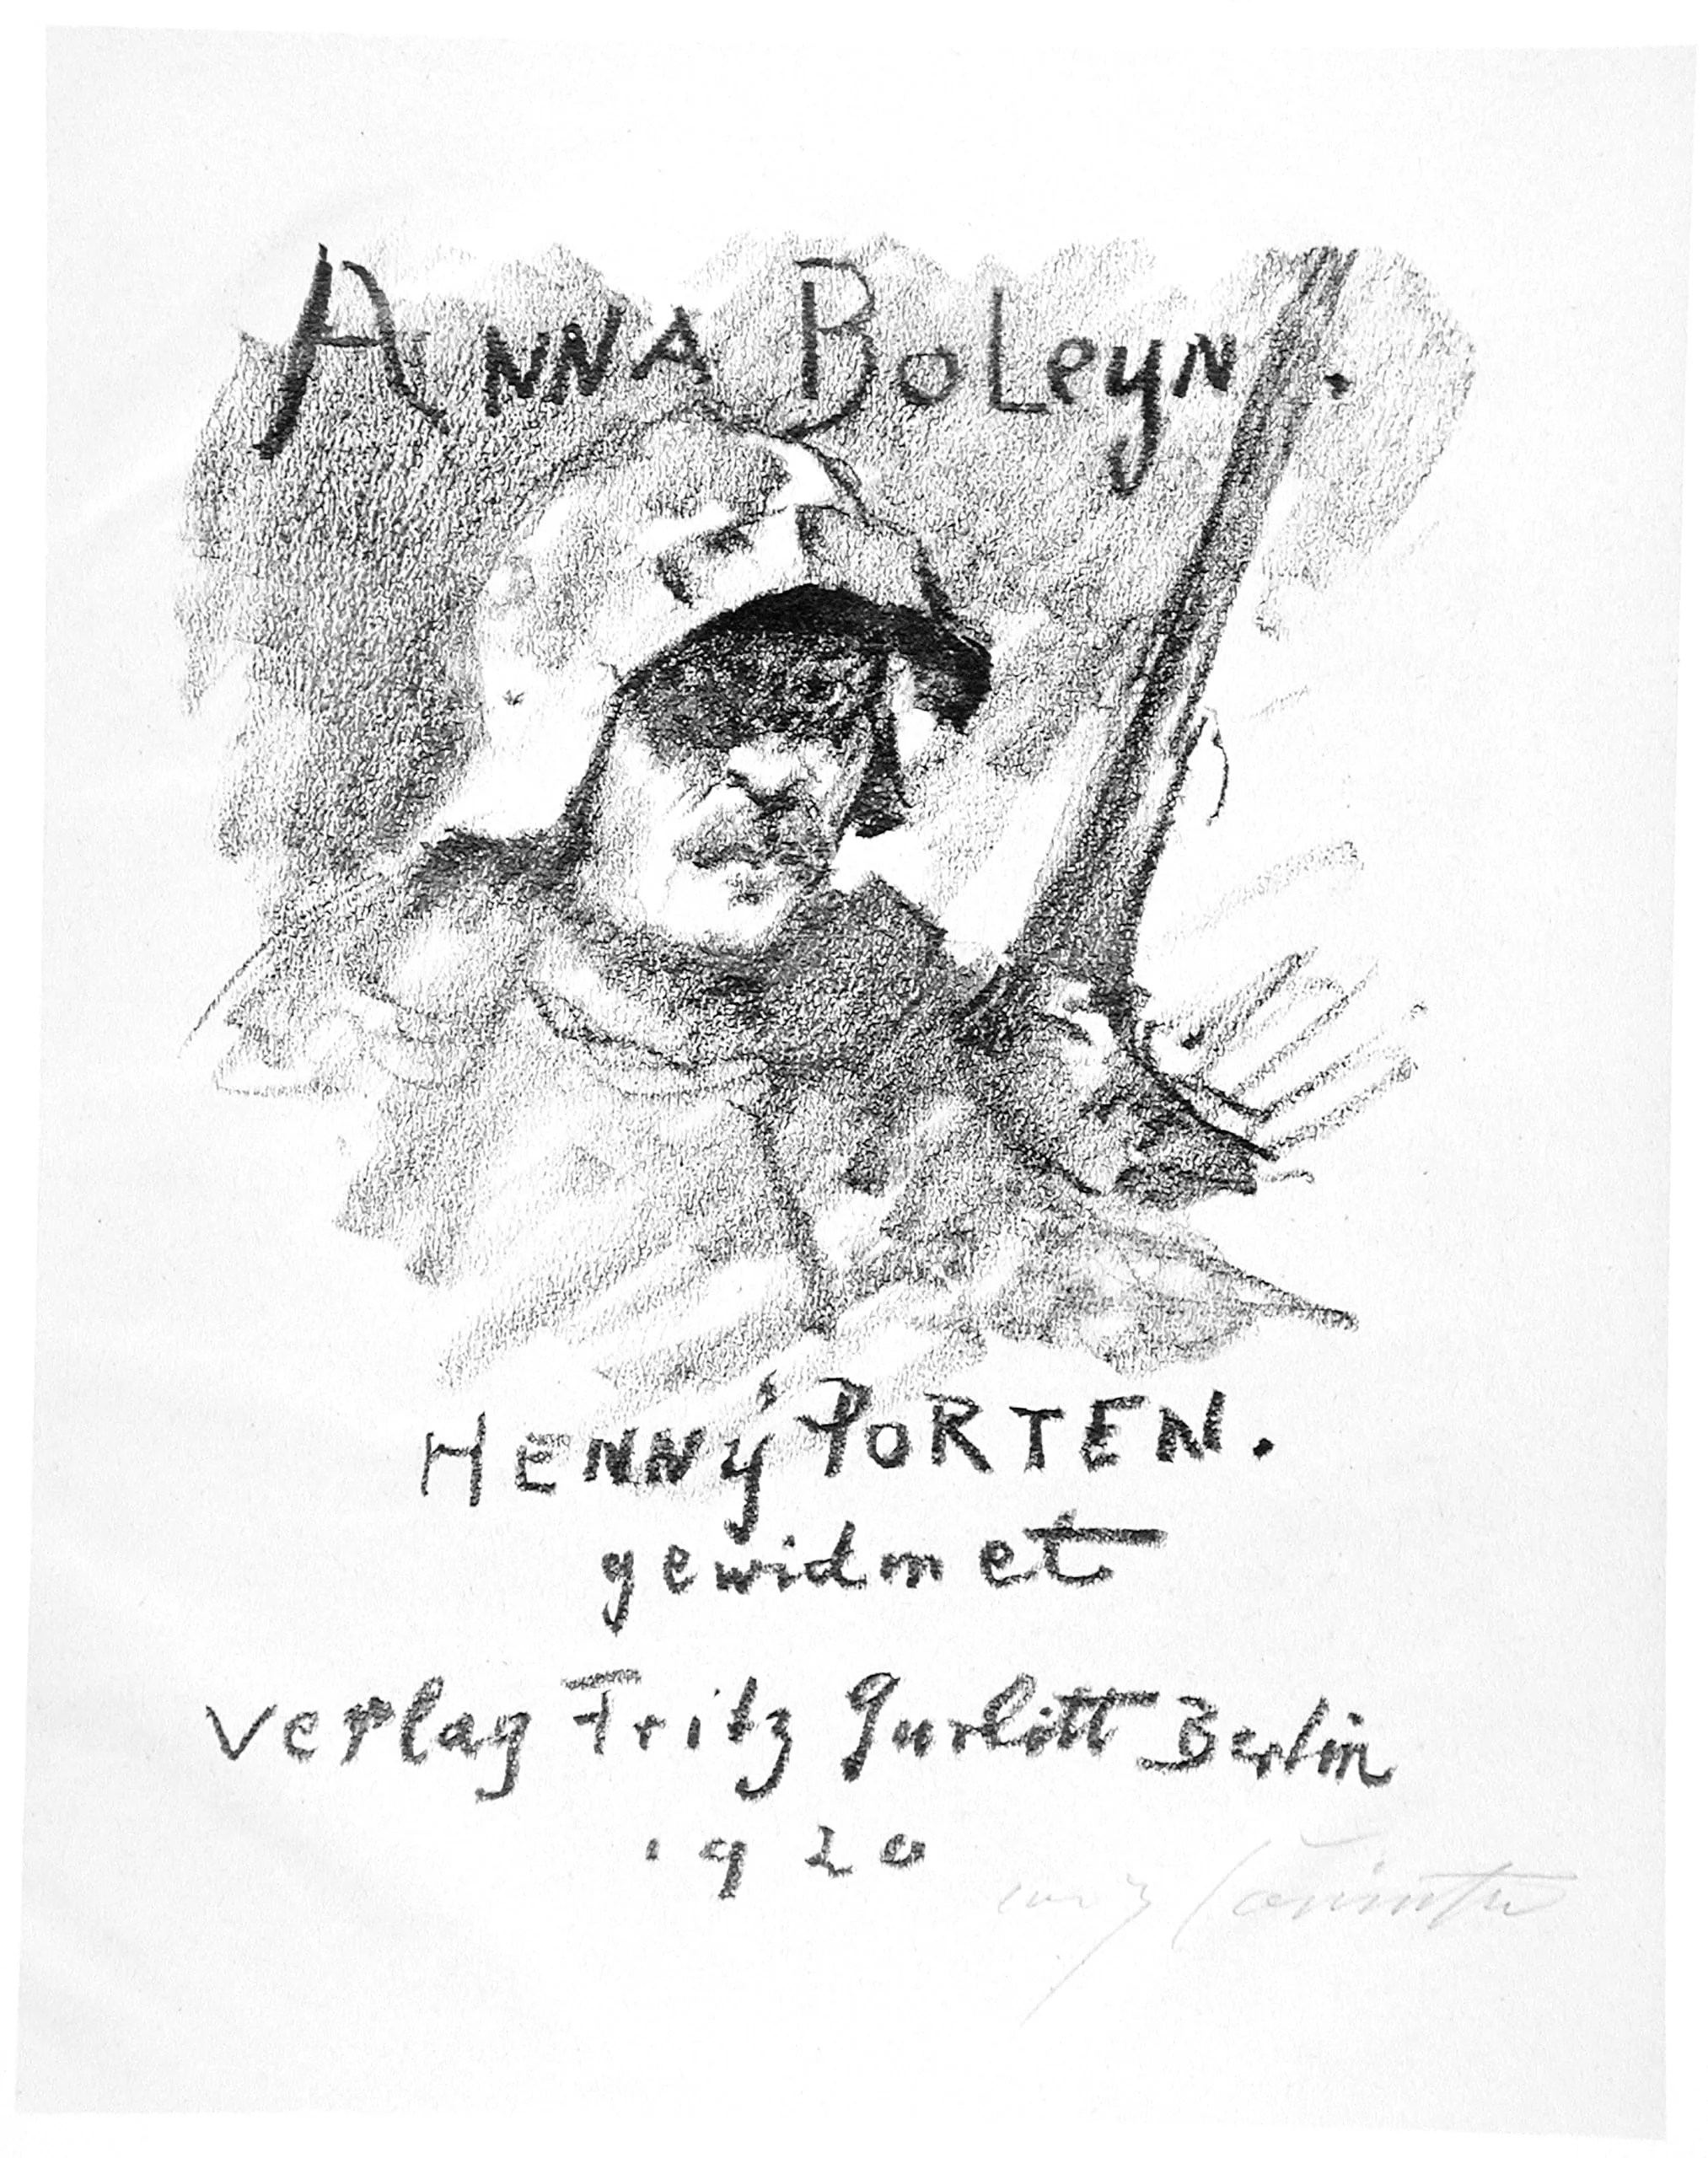 ANNA BOLEYN.
HENNY PORTEN.
gewidmet
Verlag Fritz Gurlitt Berlin
1920
Lovis Corinth